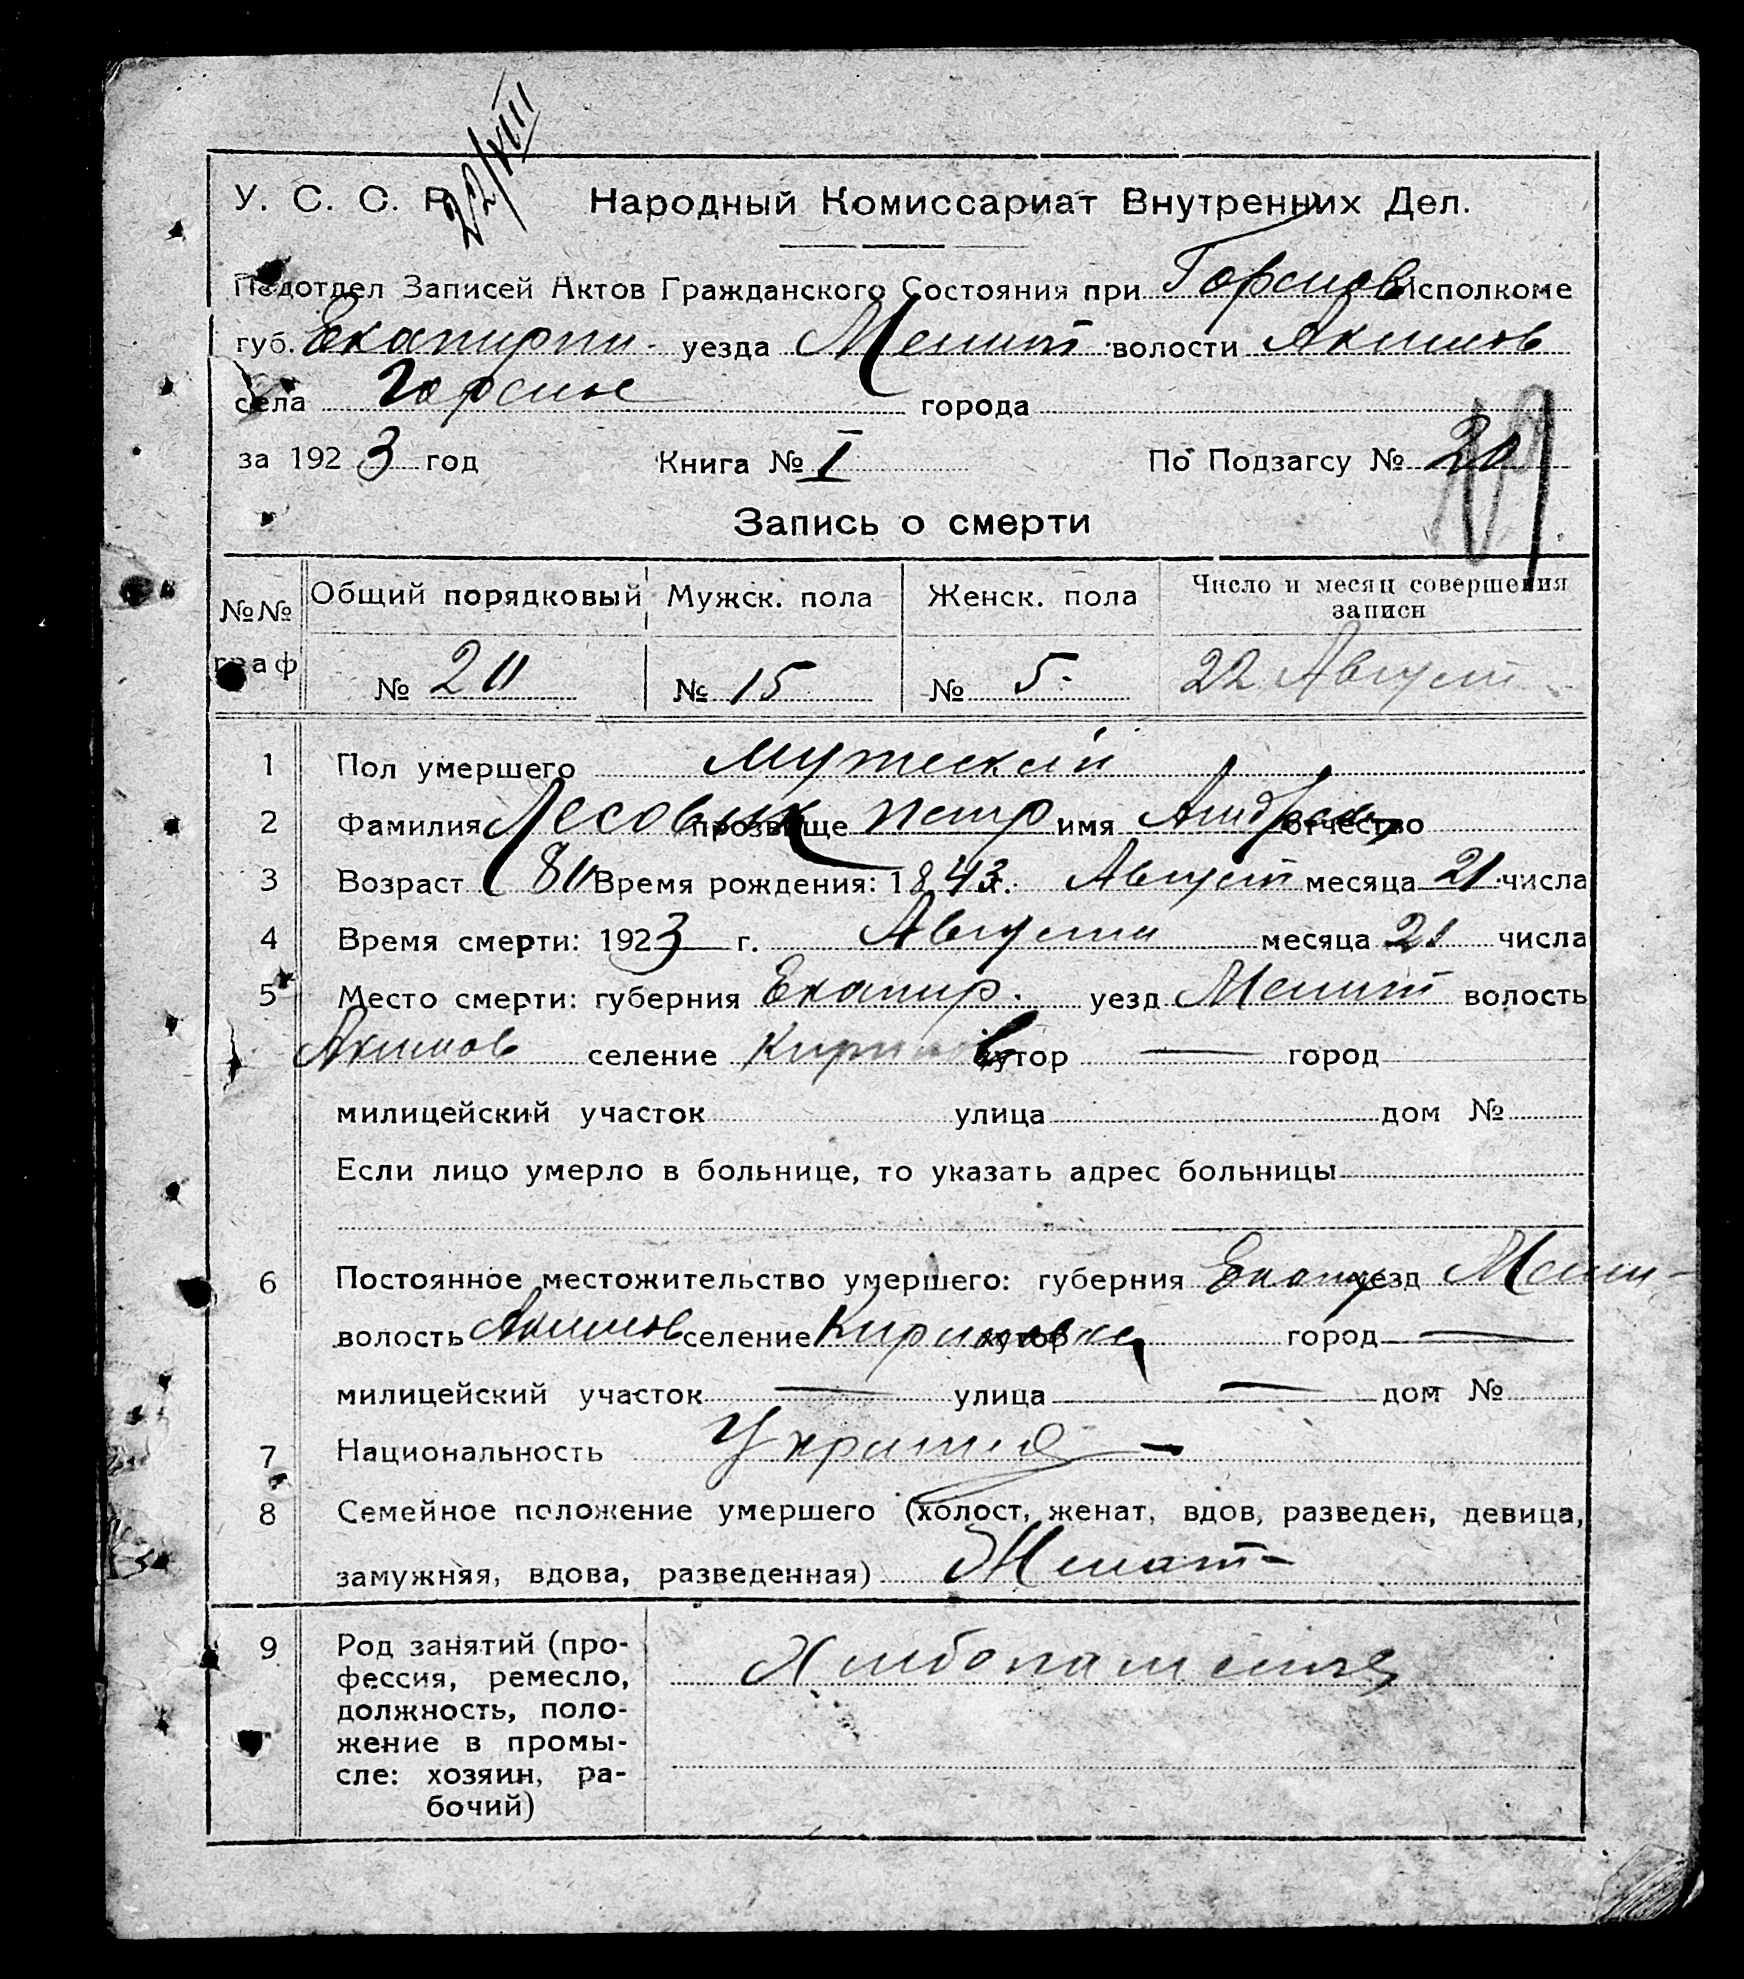 22/VIII
У. С. С. Р. Народный Комиссариат Внутренних Дел.
Подотдел Записей Актов Гражданского Состояния при Горснов Исполкоме
губ. Екатирин. уезда Мелит. волости Акимов
села города
за 1923 год Книга № I По Подзагсу № 20
Запись о смерти
№№ граф Общий порядковый Мужск. пола Женск. пола Число и месяц совершения записи
№ 20 № 15 № 5. 22 Август
1 Пол умершего мужеский
2 Фамилия Лесовик прозвище петр имя Андреев отчество
3 Возраст 80 Время рождения: 1843 г. Август месяца 21 числа
4 Время смерти: 1923 г. Августа месяца 21 числа
5 Место смерти: губерния Екатир. уезд Мелит волость
Акимов селение хутор — город
милицейский участок улица дом №
Если лицо умерло в больнице, то указать адрес больницы
6 Постоянное местожительство умершего: губерния Екатир уезд Мели-
волость Акимов селение Кириловка хутор город —
милицейский участок — улица — дом №
7 Национальность
8 Семейное положение умершего (холост, женат, вдов, разведен, девица,
замужняя, вдова, разведенная) Женат-
9 Род занятий (про-
фессия, ремесло,
должность, поло-
жение в промы-
сле: хозяин, ра-
бочий)